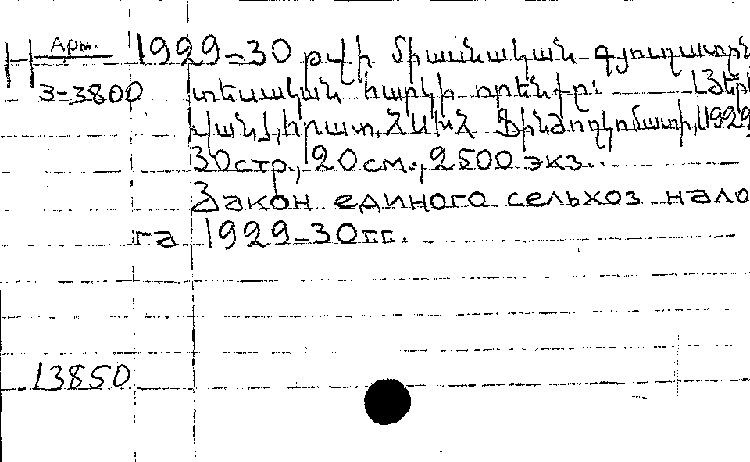 Н Арм.
3-3800
1929-30 թվի միասնական գյուղատըն
տեսական հարկի որենքը։ Յեր
վան, հրատ. ՀՍԽՀ Ֆինժողկոմատի, 1929
30 стр., 20 см., 2500 экз.
Закон единого сельхоз нало
га 1929-30 гг.
13850